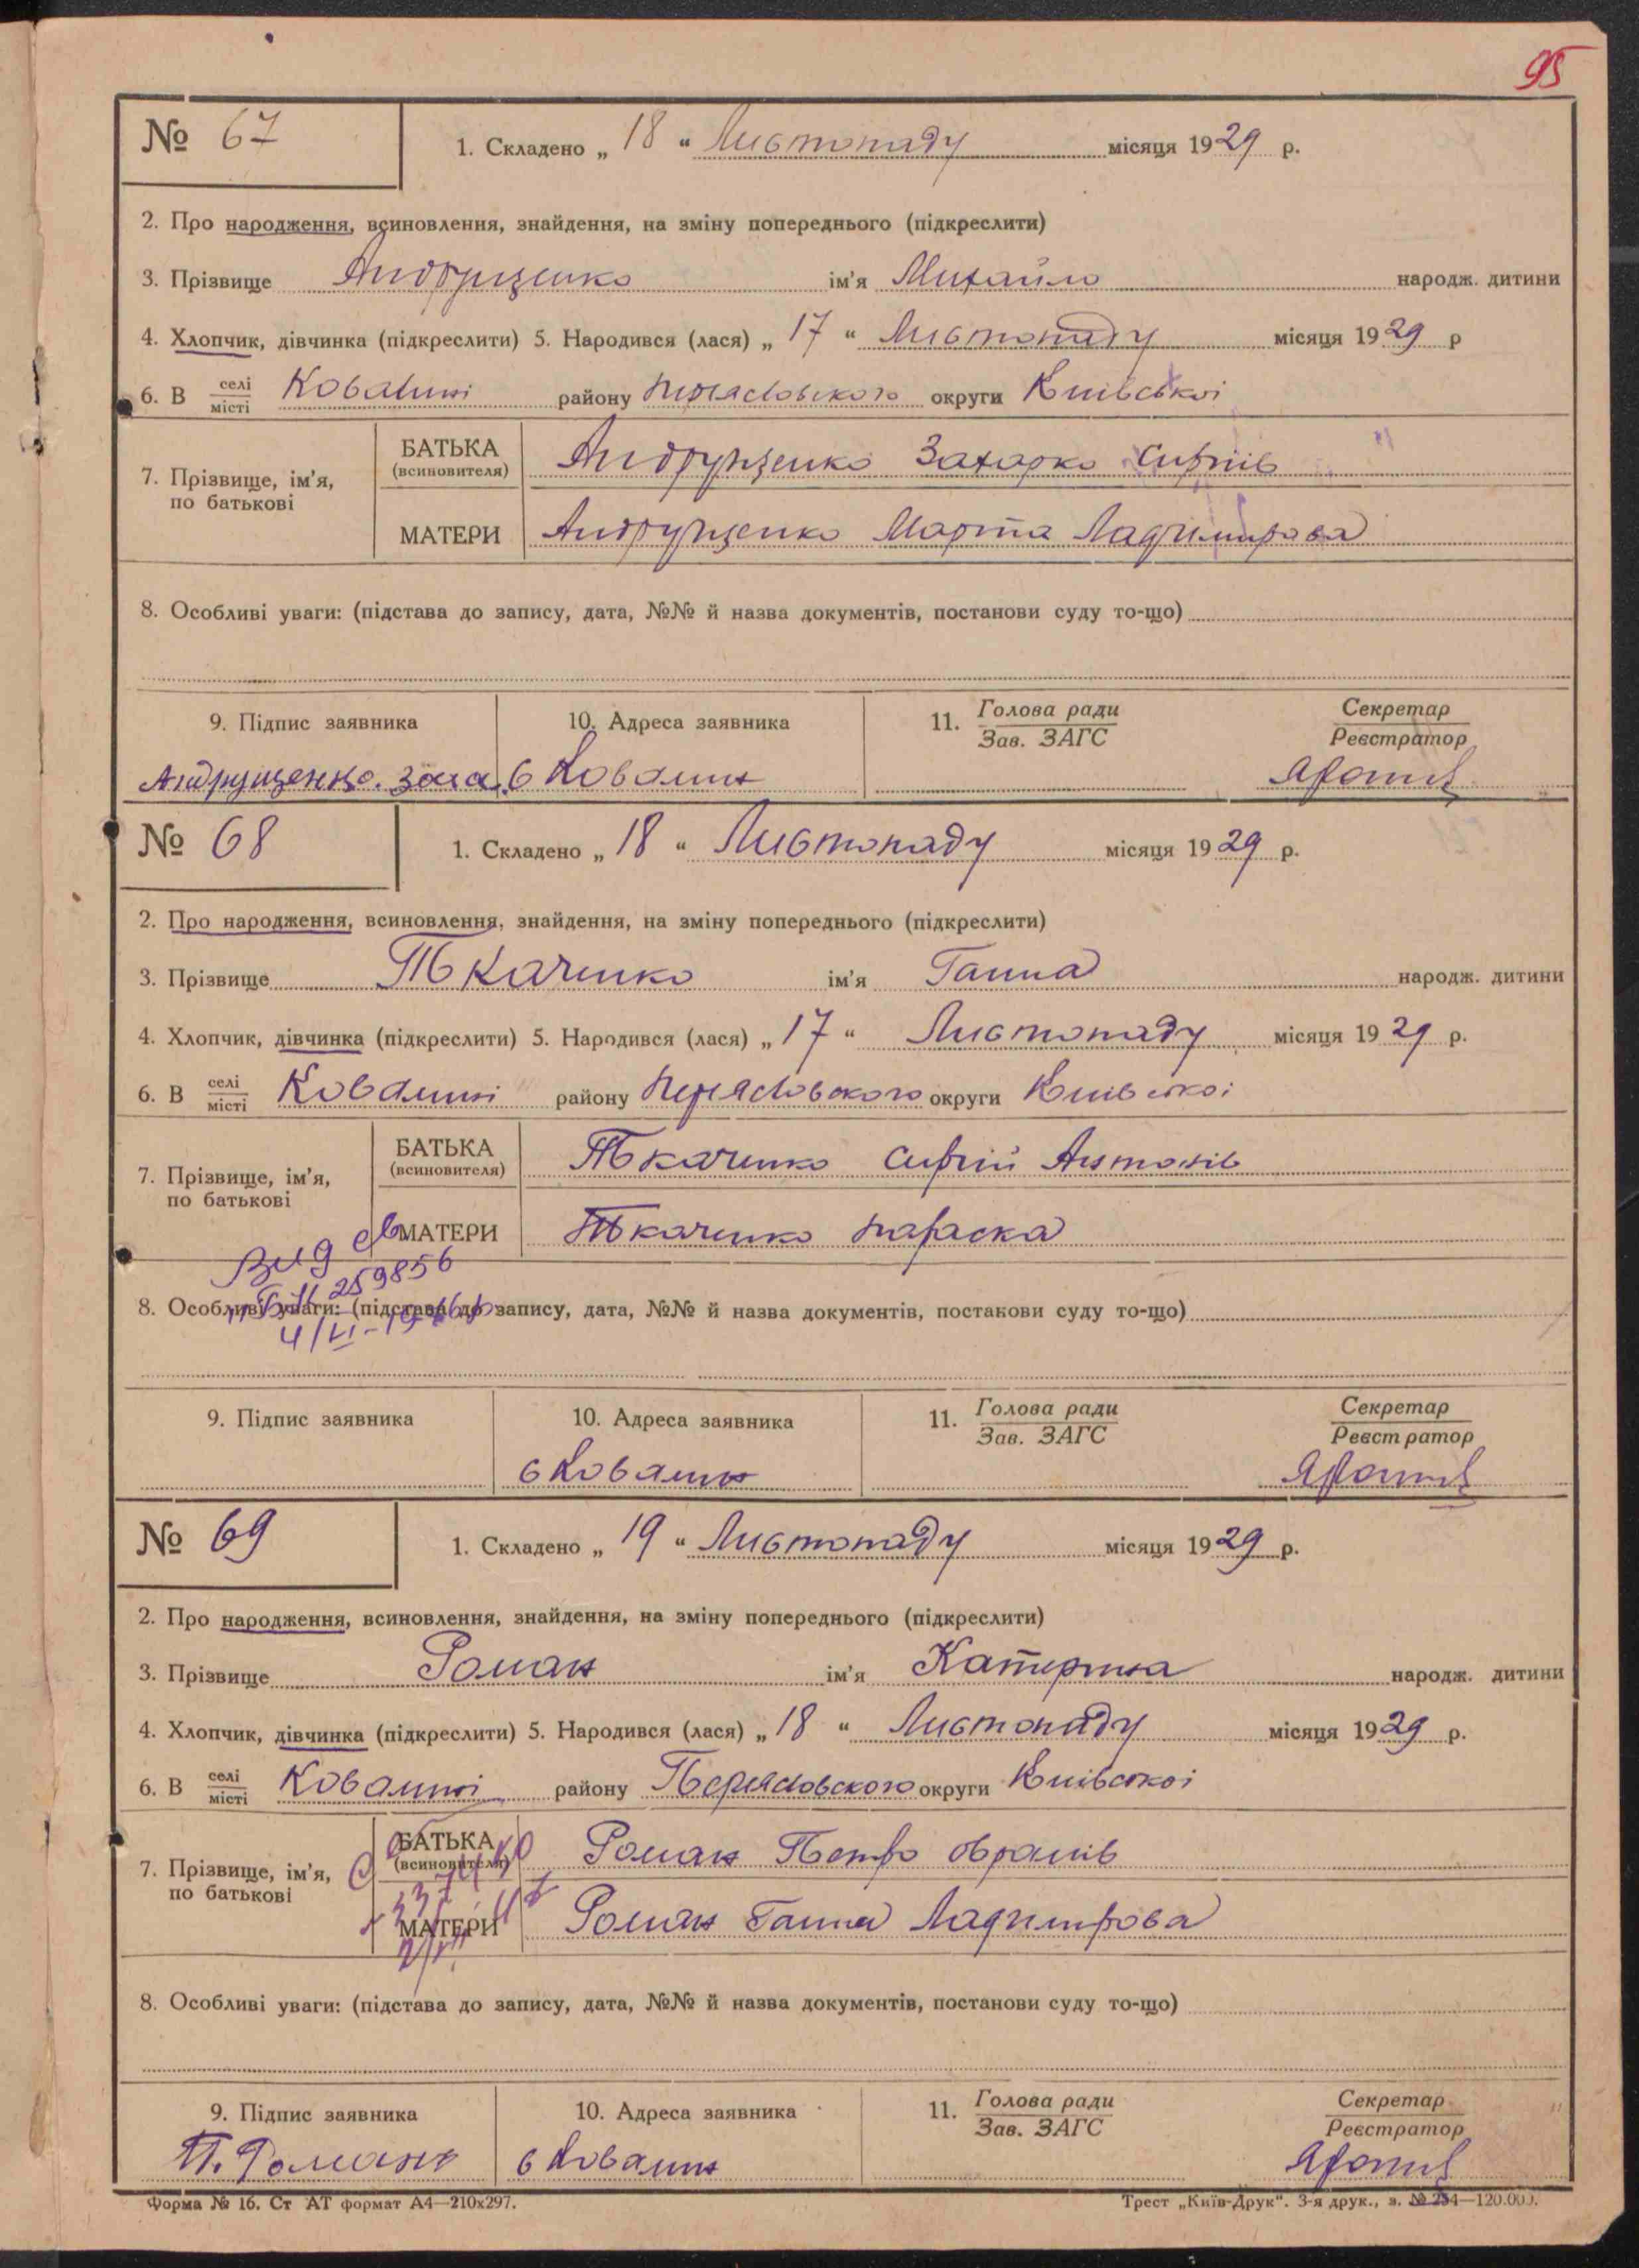 95
№ 67
1. Складено „ 18 “ Листопаду місяця 1929 р.
2. Про народження, всиновлення, знайдення, на зміну попереднього (підкреслити)
3. Прізвище Андрущенко ім'я Михайло народж. дитини
4. Хлопчик, дівчинка (підкреслити) 5. Народився (лася) „ 17 “ Листопаду місяця 1929 р
6. В селі місті Ковалині району Переяславського округи Київської
7. Прізвище, ім'я, по батькові
БАТЬКА (всиновителя) Андрущенко Захарко Сергіїв
МАТЕРИ Андрущенко Марта Ладимирова
8. Особливі уваги: (підстава до запису, дата, №№ й назва документів, постанови суду то-що)
9. Підпис заявника 10. Адреса заявника 11. Голова ради Зав. ЗАГС Секретар Реєстратор
Андрущенко. Заха с Ковалин
№ 68
1. Складено „ 18 “ Листопаду місяця 1929 р.
2. Про народження, всиновлення, знайдення, на зміну попереднього (підкреслити)
3. Прізвище Ткаченко ім'я Ганна народж. дитини
4. Хлопчик, дівчинка (підкреслити) 5. Народився (лася) „ 17 “ Листопаду місяця 1929 р.
6. В селі місті Ковалині району Переяславського округи Київської
7. Прізвище, ім'я, по батькові
БАТЬКА (всиновителя) Ткаченко Сергій Антонів
МАТЕРИ Ткаченко Параска
Вид св
259856
8. Особливі уваги: (підстава до запису, дата, №№ й назва документів, постанови суду то-що)
9. Підпис заявника 10. Адреса заявника 11. Голова ради Зав. ЗАГС Секретар Реєстратор
с Ковалин
№ 69
1. Складено „ 19 “ Листопаду місяця 1929 р.
2. Про народження, всиновлення, знайдення, на зміну попереднього (підкреслити)
3. Прізвище Роман ім'я Катерина народж. дитини
4. Хлопчик, дівчинка (підкреслити) 5. Народився (лася) „ 18 “ Листопаду місяця 1929 р.
6. В селі місті Ковалині району Переяславського округи Київської
7. Прізвище, ім'я, по батькові
БАТЬКА (всиновителя) Роман Петро Оврамів
МАТЕРИ Роман Ганна Ладимирова
8. Особливі уваги: (підстава до запису, дата, №№ й назва документів, постанови суду то-що)
9. Підпис заявника 10. Адреса заявника 11. Голова ради Зав. ЗАГС Секретар Реєстратор
П. Романъ с Ковалин
Форма № 16. Ст АТ формат А4—210х297. Трест „Київ-Друк“. 3-я друк., з. № 254—120.000.